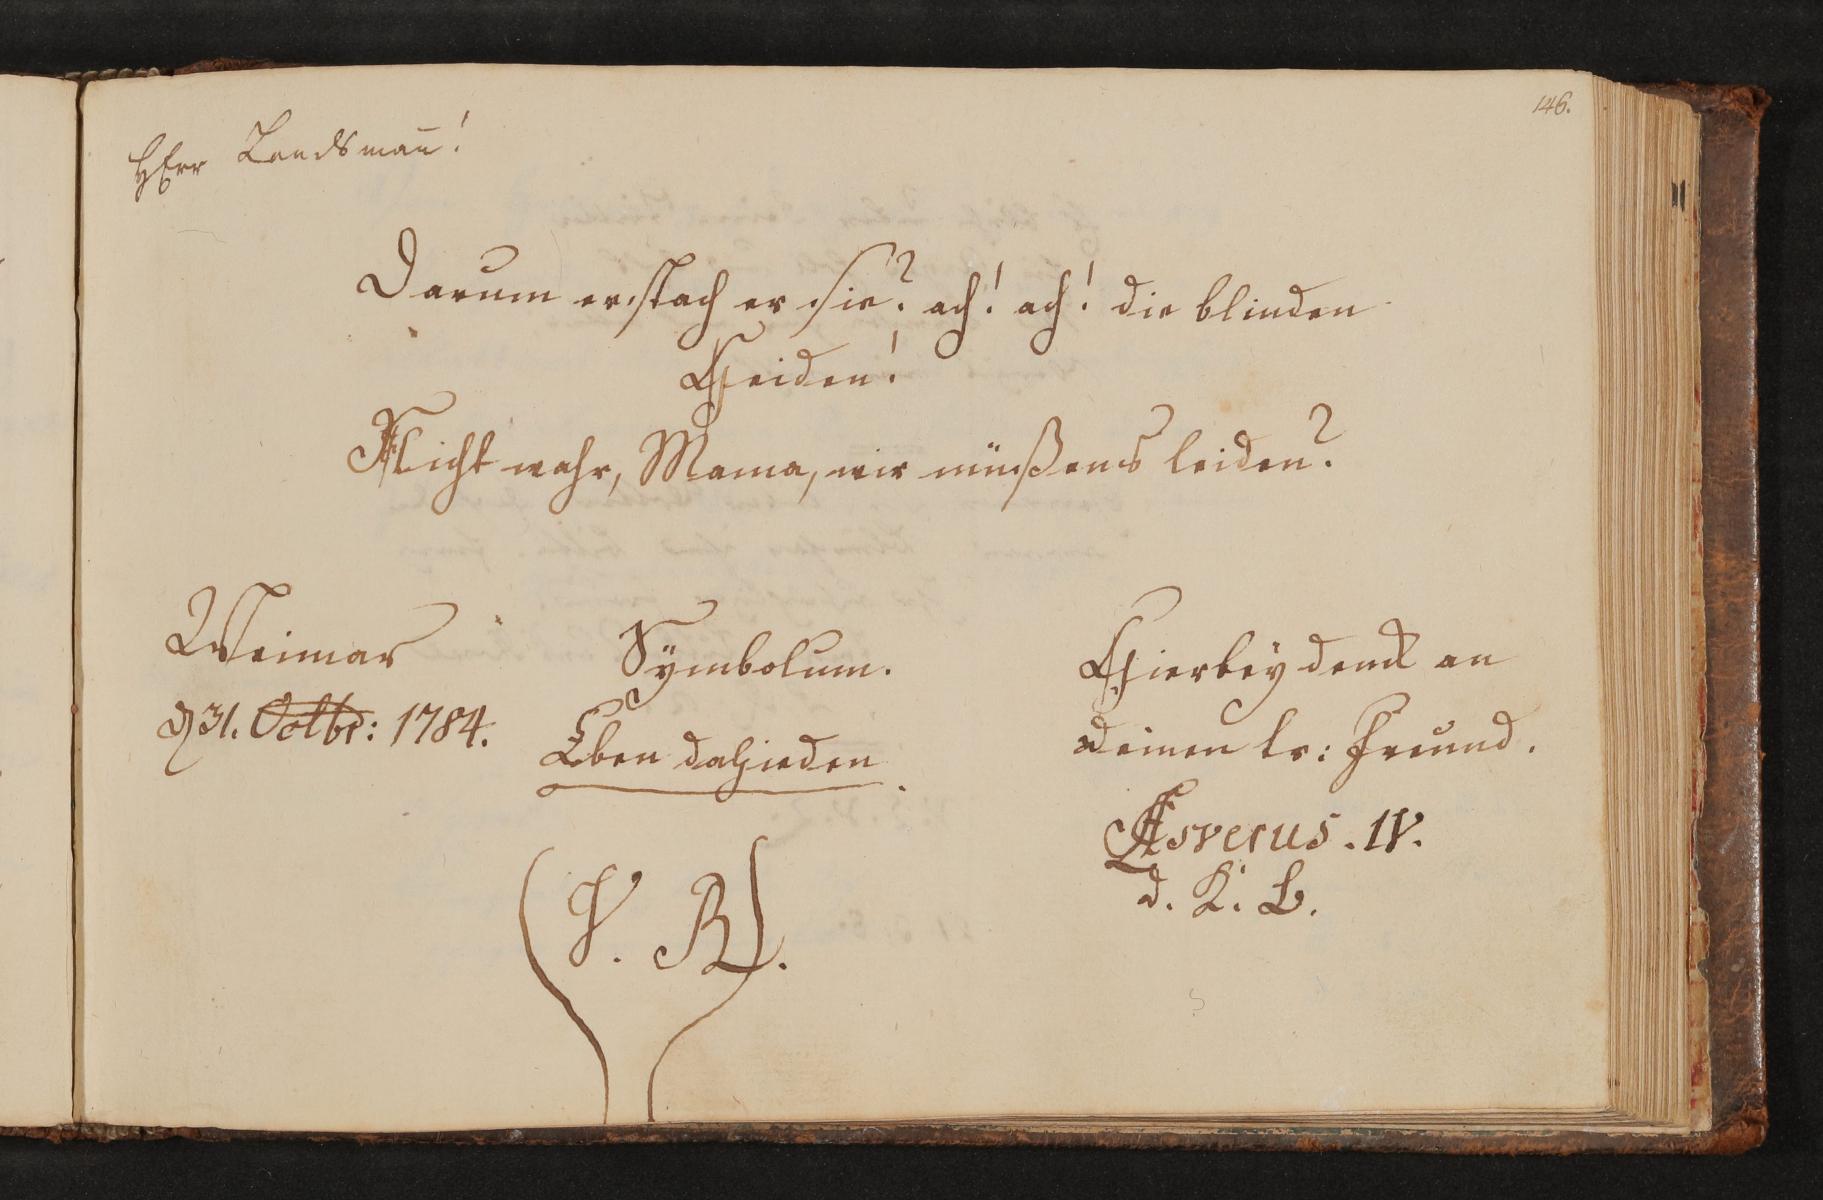 146.
HErr Landsman̄!
Darum erstach er sie? ach! ach! die blinden
Heiden!
Nicht wahr, Mama, wir müßens leiden?
Weimar
d 31. Octbr: 1784.
Symbolum.
Eben dahieden.
(V. R).
Hierbeÿ denck an
deinen lr: Freund.
Asverus. IV.
d. K. L.